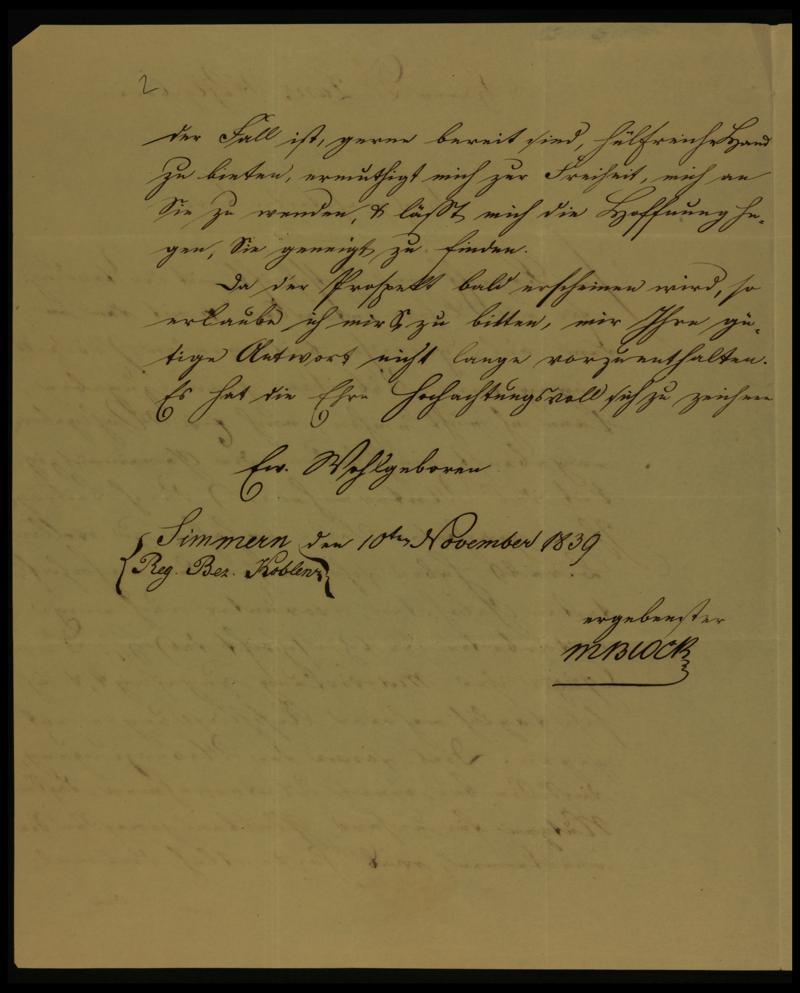 2
der Fall ist, gerne bereit sind, hülfreiche Hand
zu bieten, ermuthigt mich zur Freiheit, mich an
Sie zu wenden, & läßt mich die Hoffnung he-
gen, Sie geneigt zu finden.
Da der Prospekt bald erscheinen wird, so
erlaube ich mirs zu bitten, mir Ihre gü-
tige Antwort nicht lange vorzuenthalten.
Es hat die Ehre hochachtungsvoll sich zu zeichnen
Ew. Wohlgeboren
Simmern den 10ten November 1839
(Reg. Bez. Koblenz)
ergebenster
M BLOCK